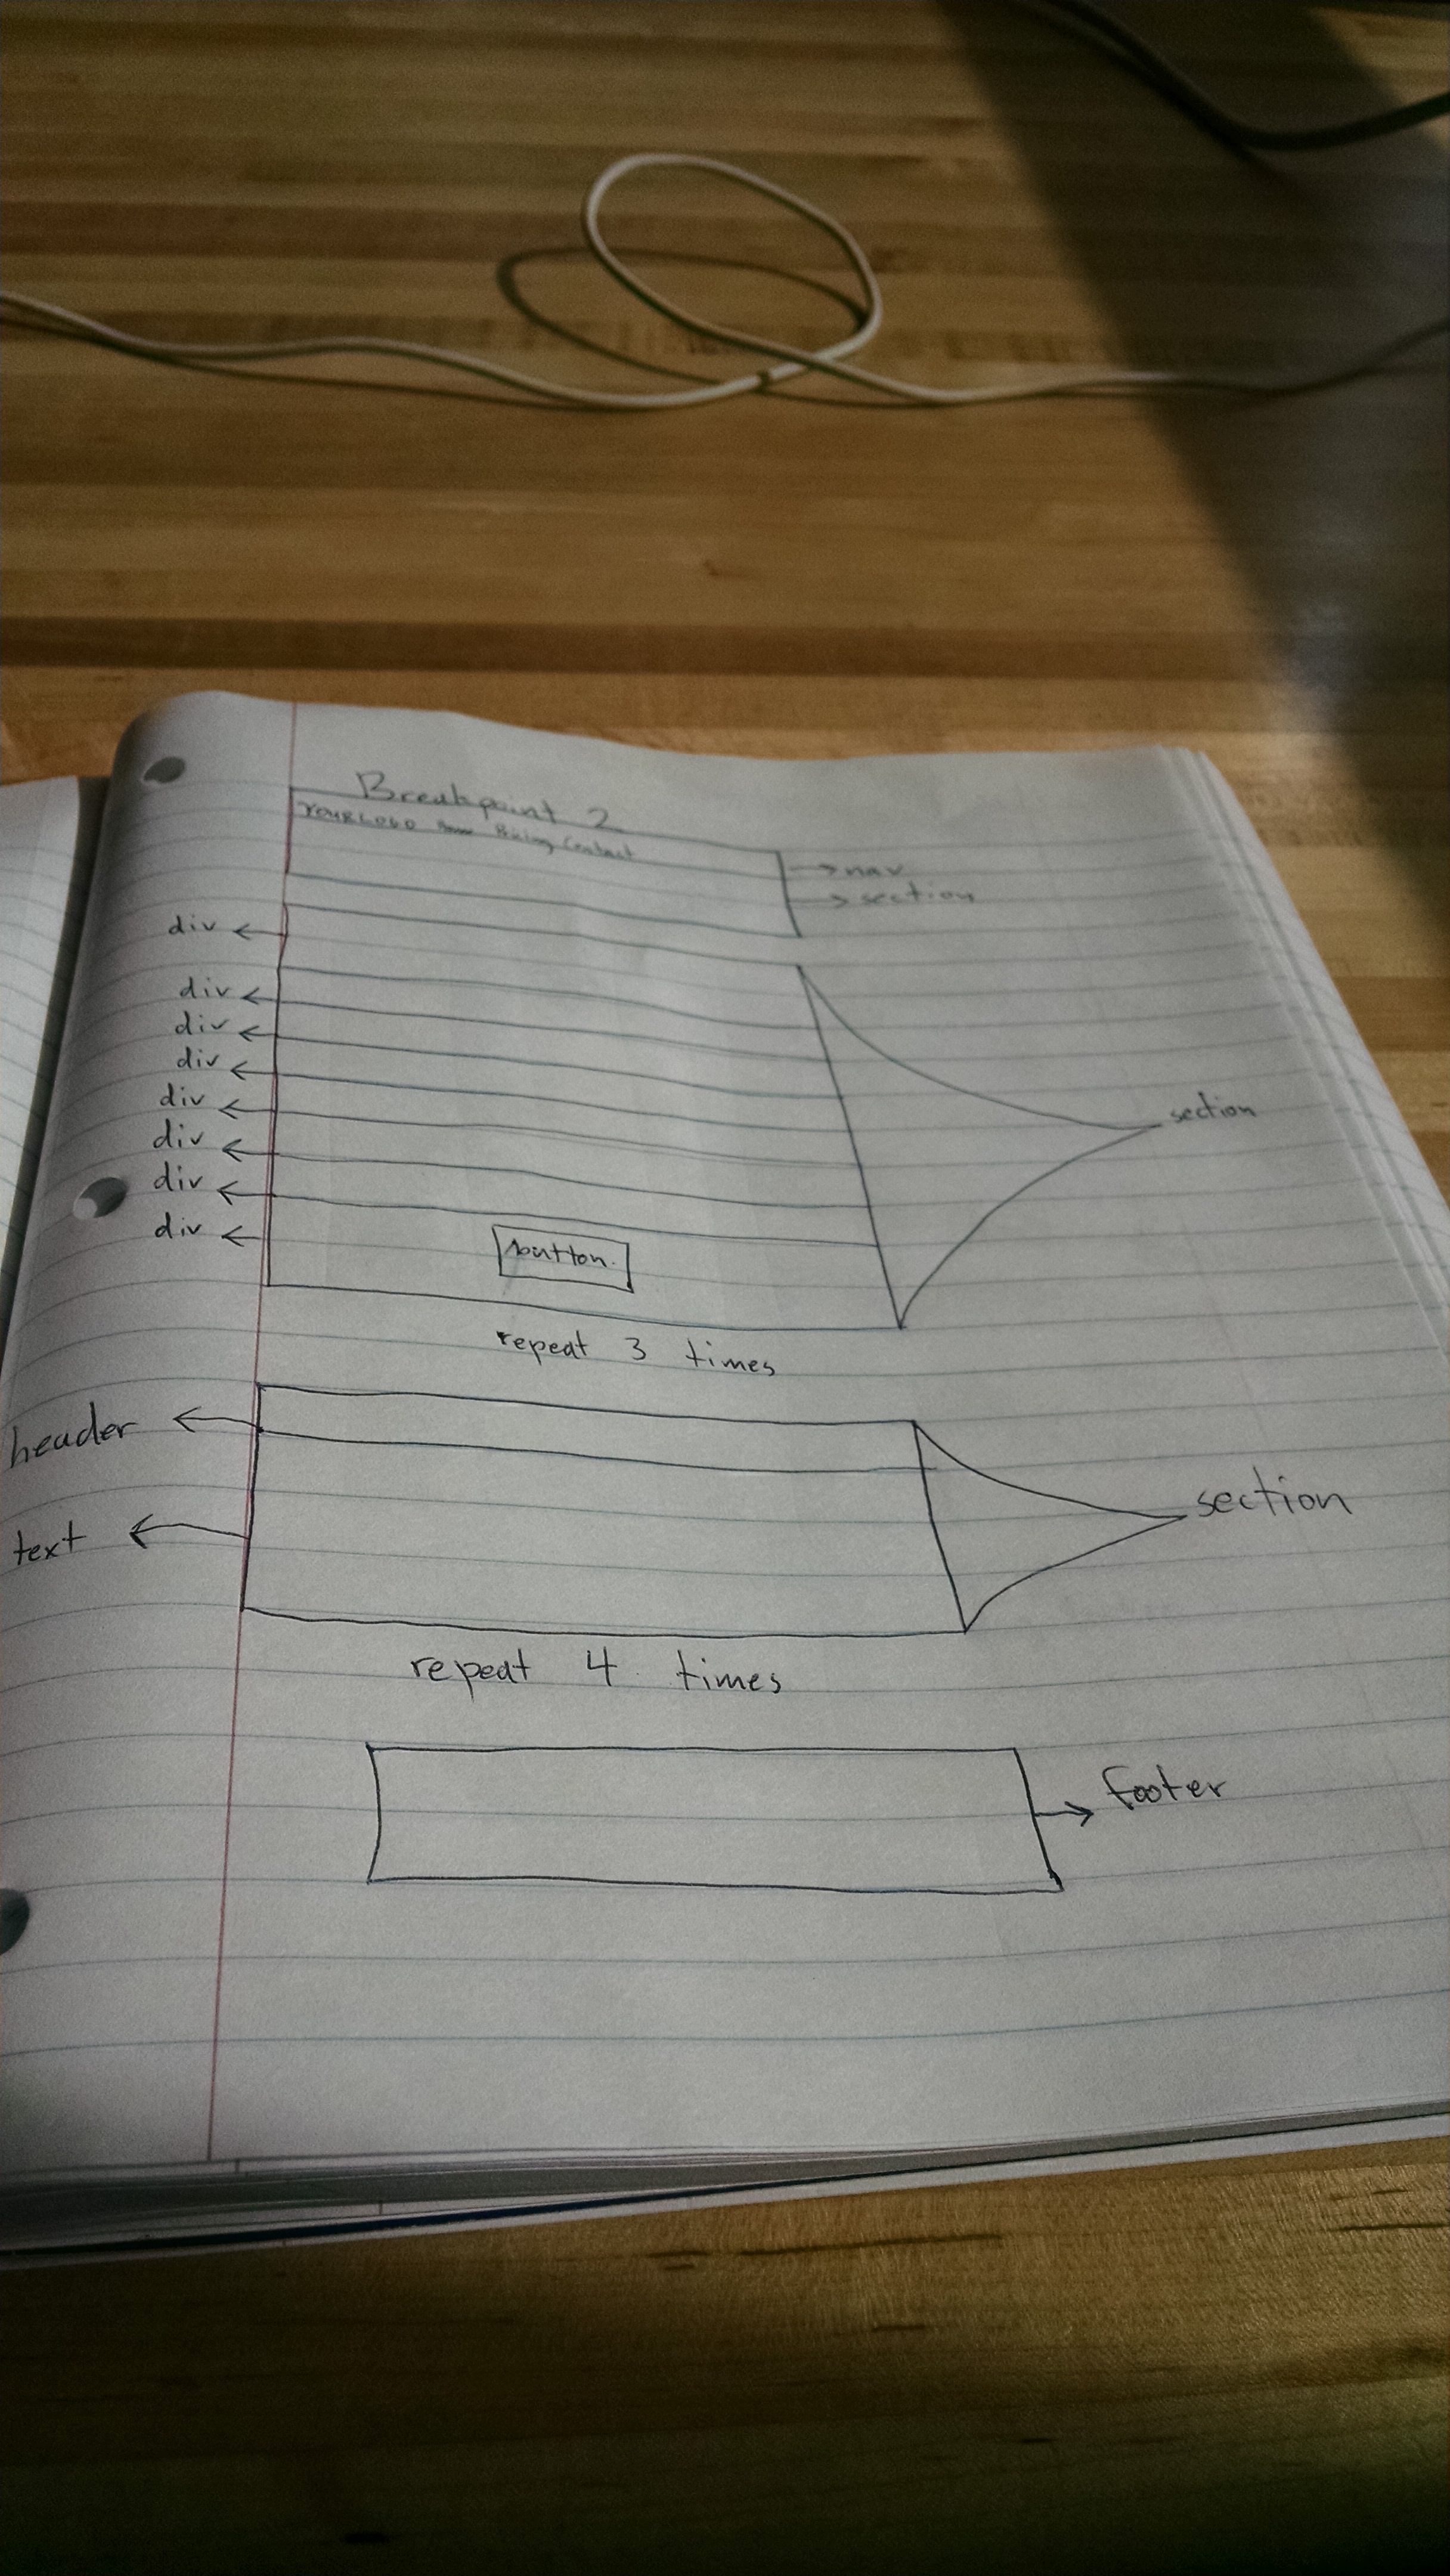 Breakpoint 2
YOURLOGO Home Pricing Contact
→ nav
→ section
div ←
div ←
div ←
div ←
div ←
div ←
div ←
div ←
section
button
repeat 3 times
header ←
section
text ←
repeat 4 times
→ footer